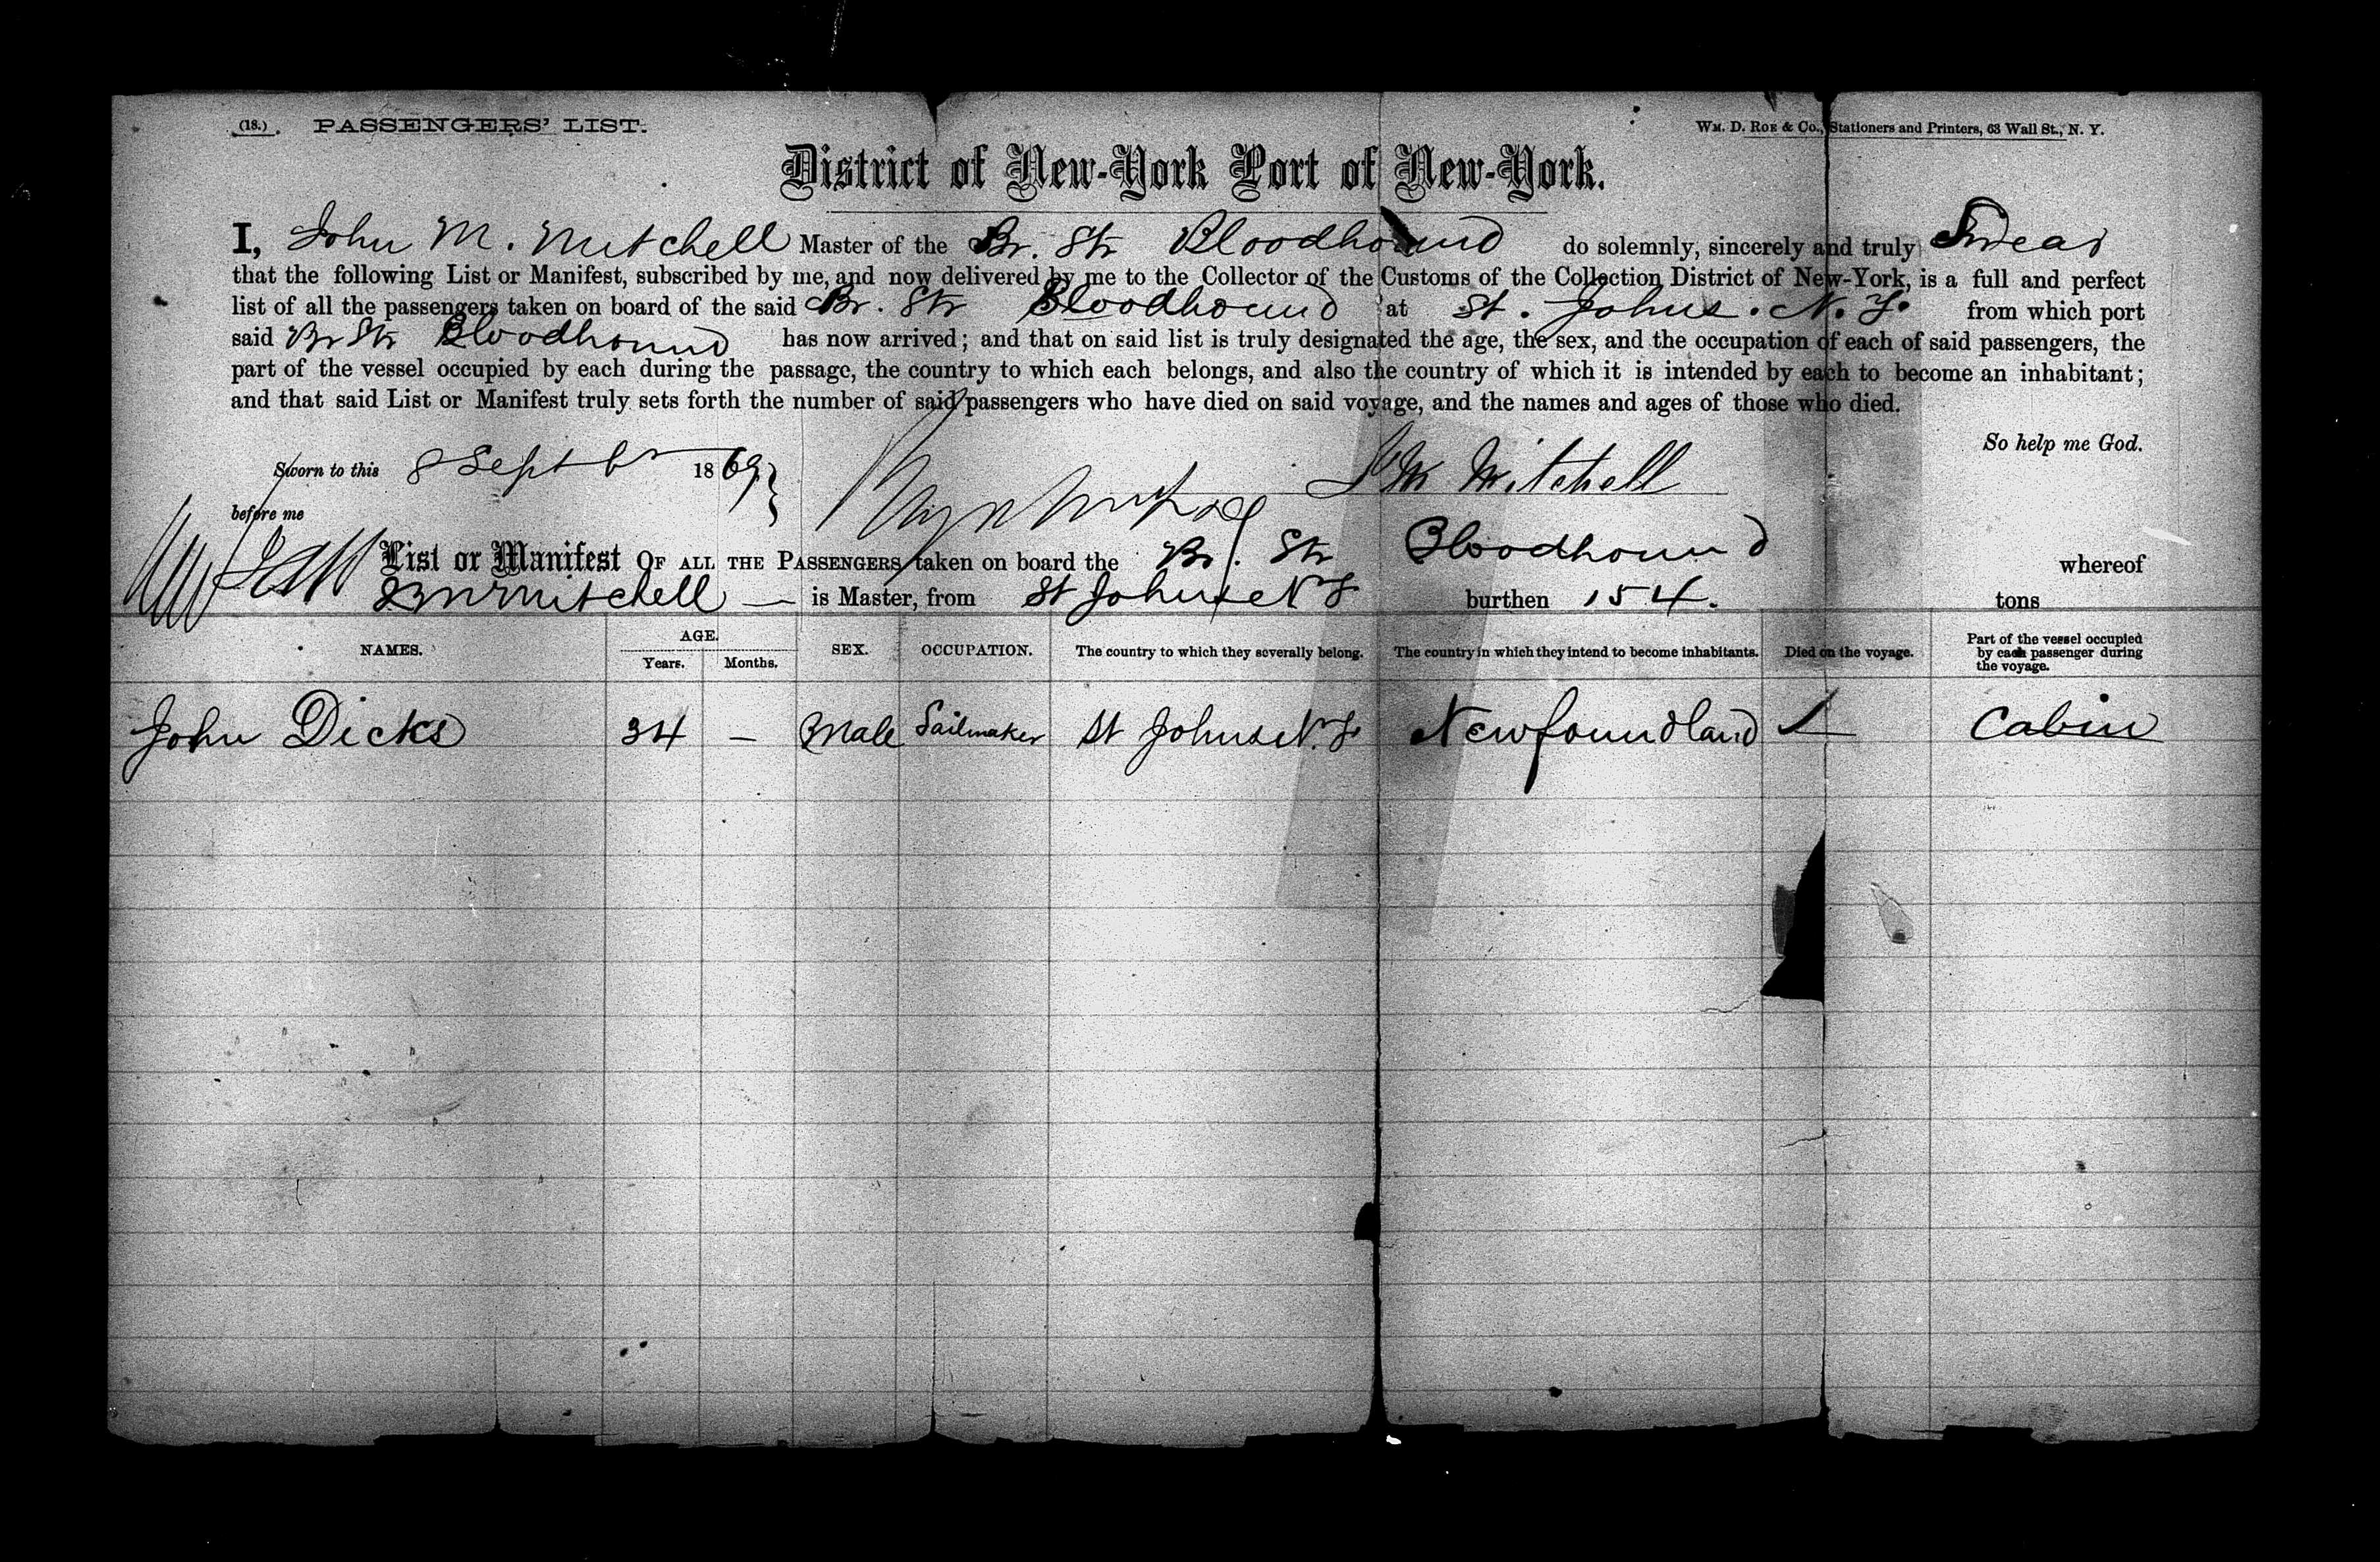 (18.) PASSENGERS' LIST. Wm. D. Roe & Co., Stationers and Printers, 63 Wall St., N. Y.
District of New-York Port of New-York.
I, John M. Mitchell Master of the Br. Str Bloodhound do solemnly, sincerely and truly Swear
that the following List or Manifest, subscribed by me, and now delivered by me to the Collector of the Customs of the Collection District of New-York, is a full and perfect
list of all the passengers taken on board of the said Br. Str Bloodhound at St. Johns. N. F. from which port
said Br Str Bloodhound has now arrived; and that on said list is truly designated the age, the sex, and the occupation of each of said passengers, the
part of the vessel occupied by each during the passage, the country to which each belongs, and also the country of which it is intended by each to become an inhabitant;
and that said List or Manifest truly sets forth the number of said passengers who have died on said voyage, and the names and ages of those who died.
So help me God.
Sworn to this 8 Septbr 1869 J M Mitchell
before me
List or Manifest OF ALL THE PASSENGERS taken on board the Br. Str Bloodhound whereof
J M Mitchell — is Master, from St Johns N F burthen 154. tons
NAMES. AGE. Years. Months. SEX. OCCUPATION. The country to which they severally belong. The country in which they intend to become inhabitants. Died on the voyage. Part of the vessel occupied by each passenger during the voyage.
John Dicks 34 — Male Sailmaker St Johns N. F. Newfoundland Cabin